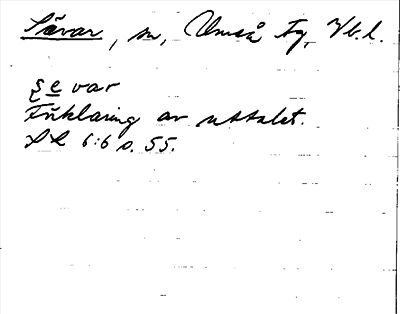 Sävar, sn, Umeå tg, Vb.l.
s̨e̲var
Förklaring av uttalet.
DL 6:6 s. 55.